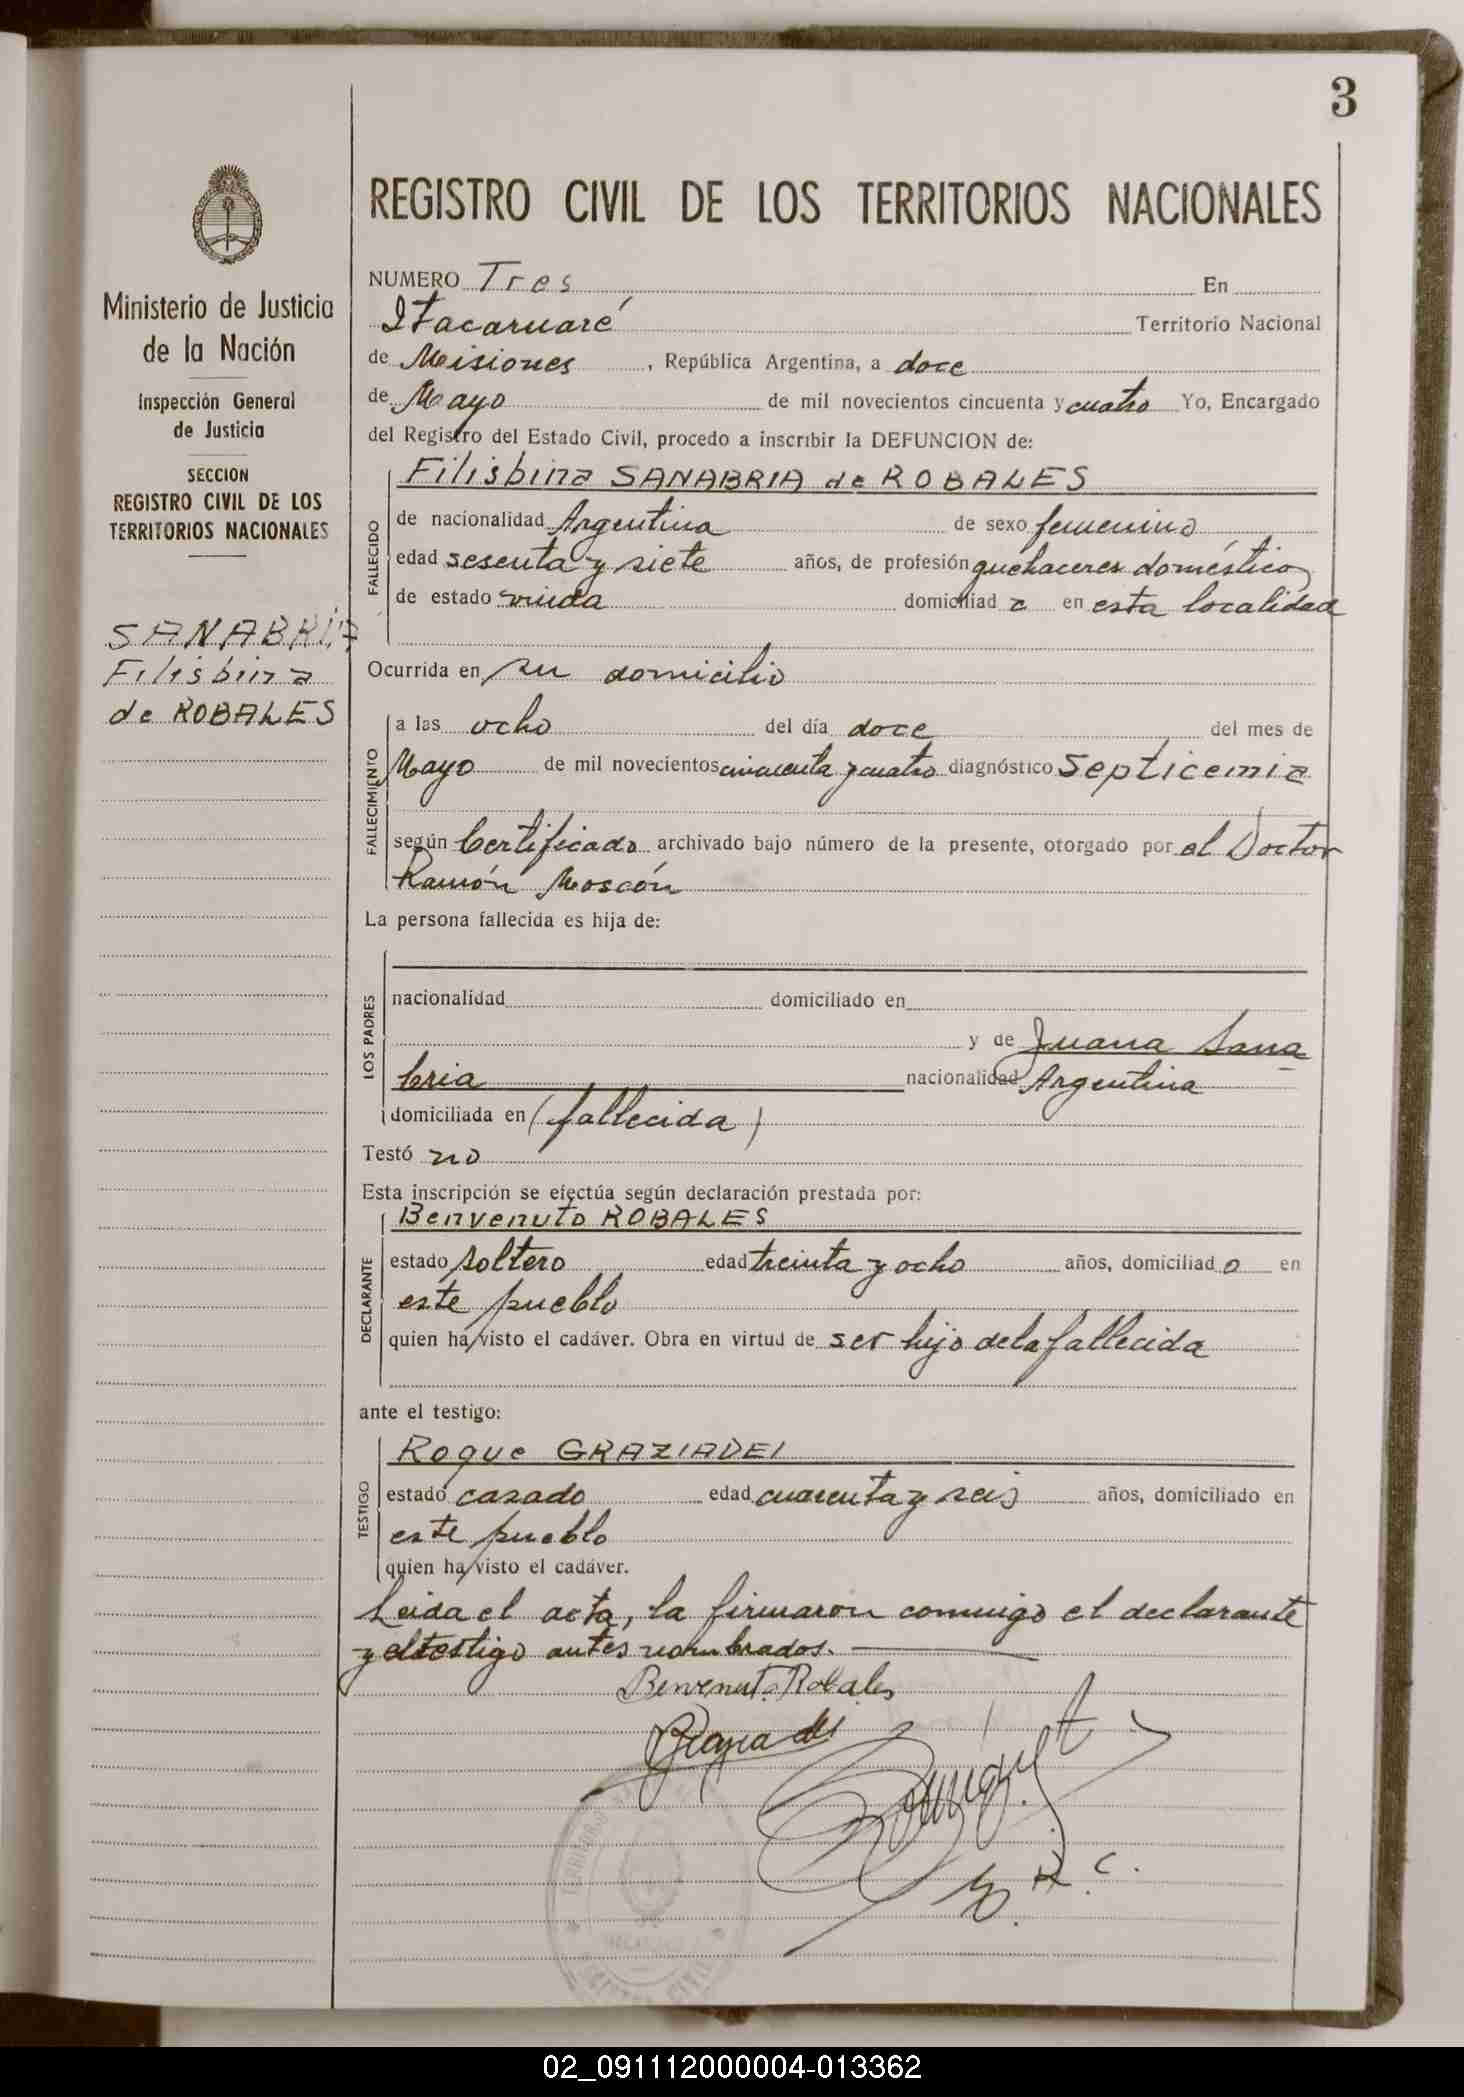 3
Ministerio de Justicia
de la Nación
Inspección General
de Justicia
SECCION
REGISTRO CIVIL DE LOS
TERRITORIOS NACIONALES
SANABRIA
Filisbina
de ROBALES
REGISTRO CIVIL DE LOS TERRITORIOS NACIONALES
NUMERO Tres En
Itacaruaré Territorio Nacional
de Misiones, República Argentina, a doce
de Mayo de mil novecientos cincuenta y cuatro Yo, Encargado
del Registro del Estado Civil, procedo a inscribir la DEFUNCION de:
Filisbina SANABRIA de ROBALES
FALLECIDO
de nacionalidad Argentina de sexo femenino
edad sesenta y siete años, de profesión quehaceres doméstico
de estado viuda domiciliad a en esta localidad
Ocurrida en su domicilio
FALLECIMIENTO
a las ocho del día doce del mes de
Mayo de mil novecientos cincuenta y cuatro diagnóstico Septicemia
según Certificado archivado bajo número de la presente, otorgado por el Doctor
Ramón Moscón
La persona fallecida es hija de:
LOS PADRES
nacionalidad domiciliado en
y de Juana Sana
bria nacionalidad Argentina
domiciliada en (fallecida)
Testó no
Esta inscripción se efectúa según declaración prestada por:
Benvenuto ROBALES
DECLARANTE
estado soltero edad treinta y ocho años, domiciliad o en
este pueblo
quien ha/visto el cadáver. Obra en virtud de ser hijo de la fallecida
ante el testigo:
Roque GRAZIADEI
TESTIGO
estado casado edad cuarenta y seis años, domiciliado en
este pueblo
quien ha/visto el cadáver.
Leida el acta, la firmaron conmigo el declarante
y el testigo antes nombrados.
Benvenuto Robales
02_091112000004-013362